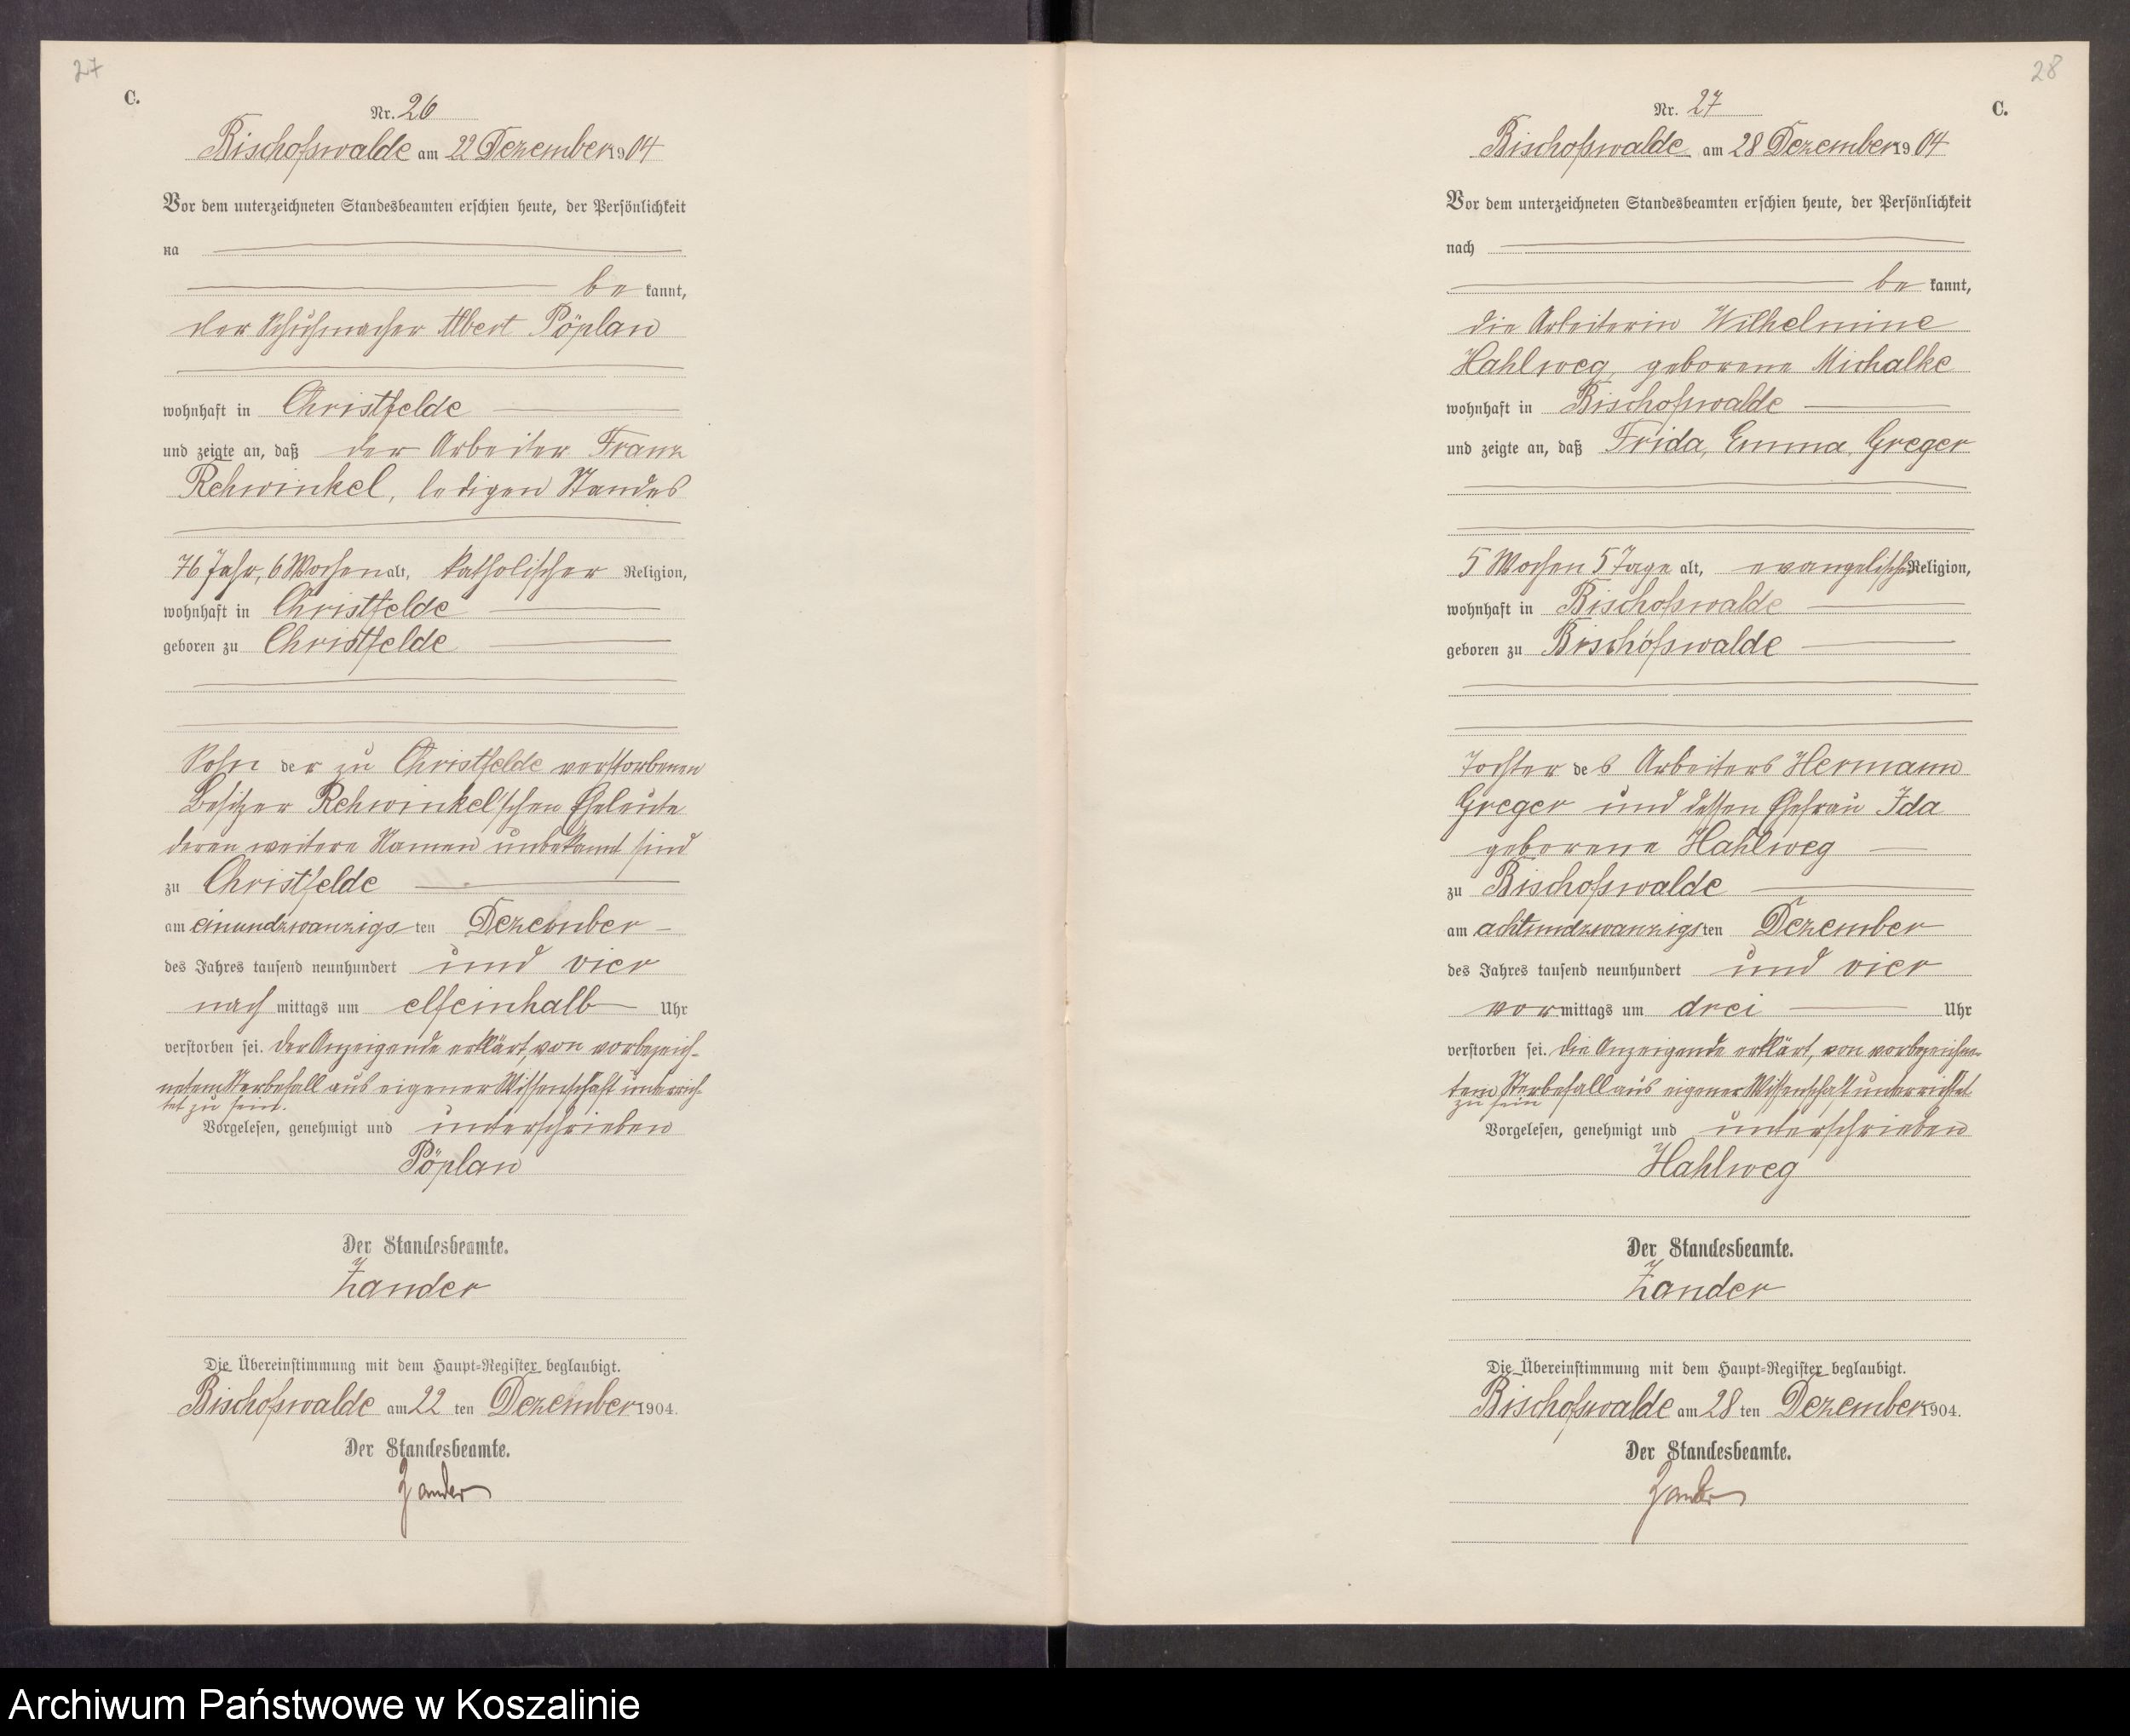 27
C.
Nr. 26
Bischofswalde am 22 Dezember 1904
Vor dem unterzeichneten Standesbeamten erschien heute, der Persönlichkeit
na
be kannt,
der Schuhmacher Albert Pöplau
wohnhaft in Christfelde
und zeigte an, daß der Arbeiter Franz
Rehwinkel, ledigen Standes
76 Jahr, 6 Wochen alt, katholischer Religion,
wohnhaft in Christfelde
geboren zu Christfelde
Sohn der zu Christfelde verstorbenen
Besitzer Rehwinkel'schen Eheleute
deren weitere Namen unbekannt sind
zu Christfelde
am einundzwanzigsten Dezember
des Jahres tausend neunhundert und vier
nach mittags um elfeinhalb Uhr
verstorben sei. Der Anzeigende erklärt, von vorbezeich-
netem Sterbefall aus eigener Wissenschaft unterrich-
tet zu sein.
Vorgelesen, genehmigt und unterschrieben
Pöplau
Der Standesbeamte.
Zander
Die Übereinstimmung mit dem Haupt-Register beglaubigt.
Bischofswalde am 22 ten Dezember 1904.
Der Standesbeamte.
Zander
28
C.
Nr. 27
Bischofswalde am 28 Dezember 1904
Vor dem unterzeichneten Standesbeamten erschien heute, der Persönlichkeit
nach
be kannt,
die Arbeiterin Wilhelmine
Hahlweg, geborene Michalke
wohnhaft in Bischofswalde
und zeigte an, daß Frida, Emma, Greger
5 Wochen 5 Tage alt, evangelischer Religion,
wohnhaft in Bischofswalde
geboren zu Bischofswalde
Tochter des Arbeiters Hermann
Greger und dessen Ehefrau Ida
geborene Hahlweg
zu Bischofswalde
am achtundzwanzigsten Dezember
des Jahres tausend neunhundert und vier
vor mittags um drei Uhr
verstorben sei. Die Anzeigende erklärt, von vorbezeichne-
tem Sterbefall aus eigener Wissenschaft unterrichtet
zu sein
Vorgelesen, genehmigt und unterschrieben
Hahlweg
Der Standesbeamte.
Zander
Die Übereinstimmung mit dem Haupt-Register beglaubigt.
Bischofswalde am 28 ten Dezember 1904.
Der Standesbeamte.
Zander
Archiwum Państwowe w Koszalinie